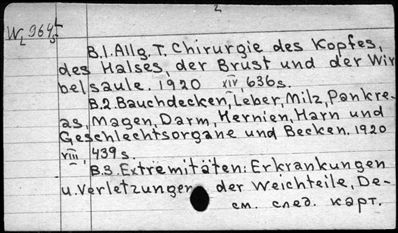 2
WL 964/5
B.1.Allg.T. Chirurgie des Kopfes,
des Halses, der Brust und der Wir
belsaule. 1920 XIV, 636s.
B.2.Bauchdecken, Leber, Milz, Pankre-
as, Magen, Darm, Hernien, Harn und
Geschlechtsorgane und Becken. 1920
VIII, 439s.
B.3.Extremitäten: Erkrankungen
u.Verletzungen der Weichteile, De-
см. след. карт.